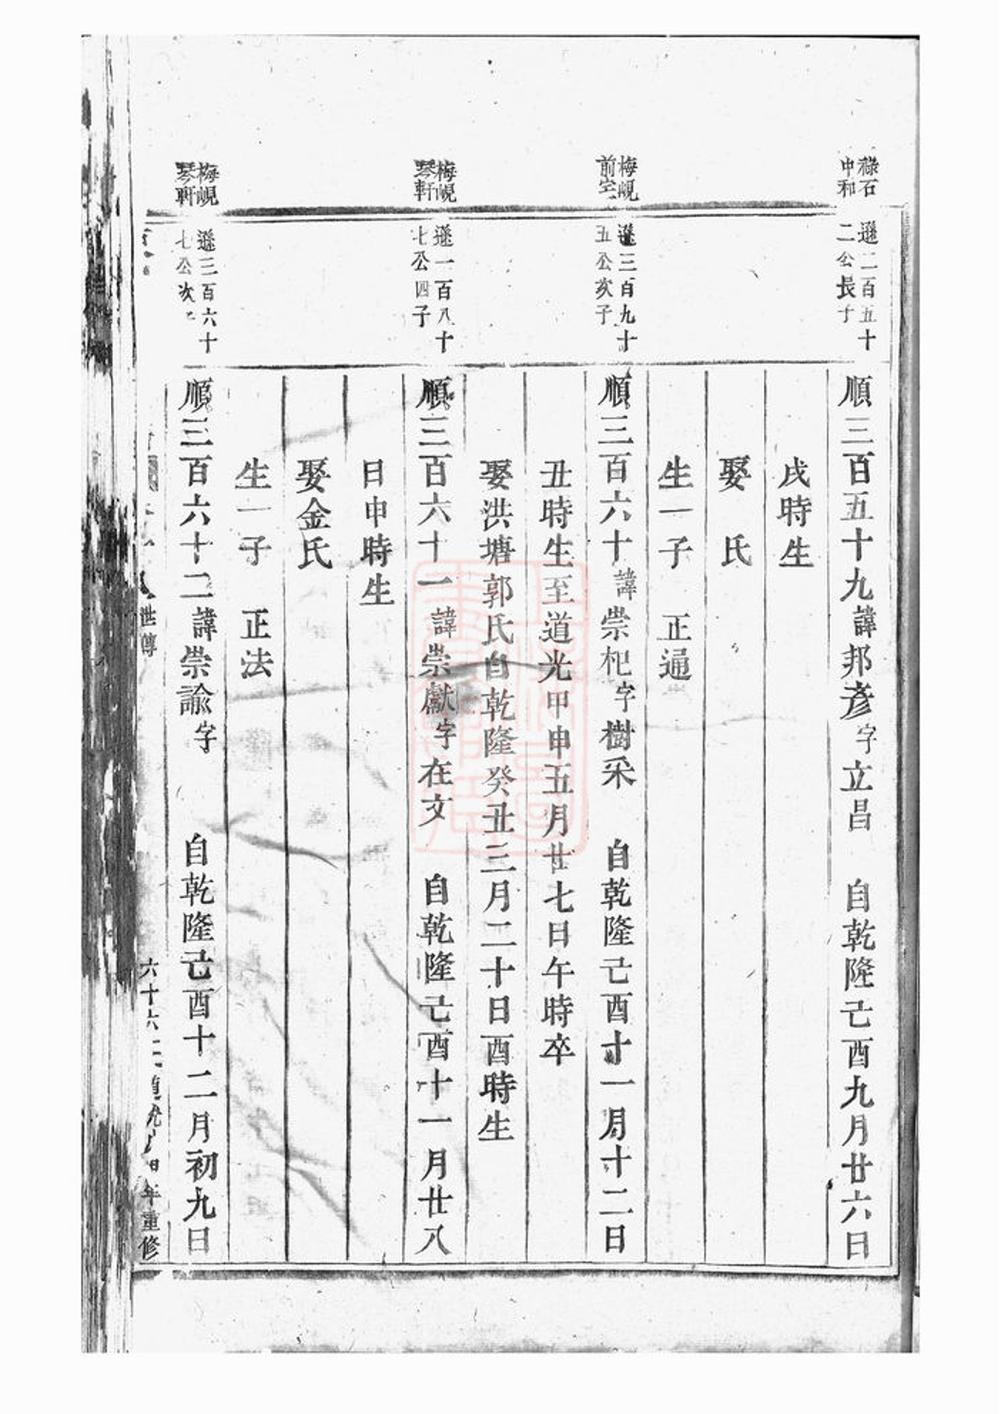 祿石
中和
遜二百五十
二公長子
順三百五十九諱邦彥字立昌 自乾隆己酉九月廿六日
戌時生
娶 氏
生一子 正通
梅峴
前宅
遜三百九十
五公次子
順三百六十諱崇杞字樹采 自乾隆己酉十一月十二日
丑時生至道光甲申五月廿七日午時卒
娶洪塘郭氏自乾隆癸丑三月二十日酉時生
梅峴
琴軒
遜一百八十
七公四子
順三百六十一諱崇獻字在文 自乾隆己酉十一月廿八
日申時生
娶金氏
生一子 正法
梅峴
琴軒
遜三百六十
七公次子
順三百六十二諱崇諭字 自乾隆己酉十二月初九日
世傳
六十六
年重修